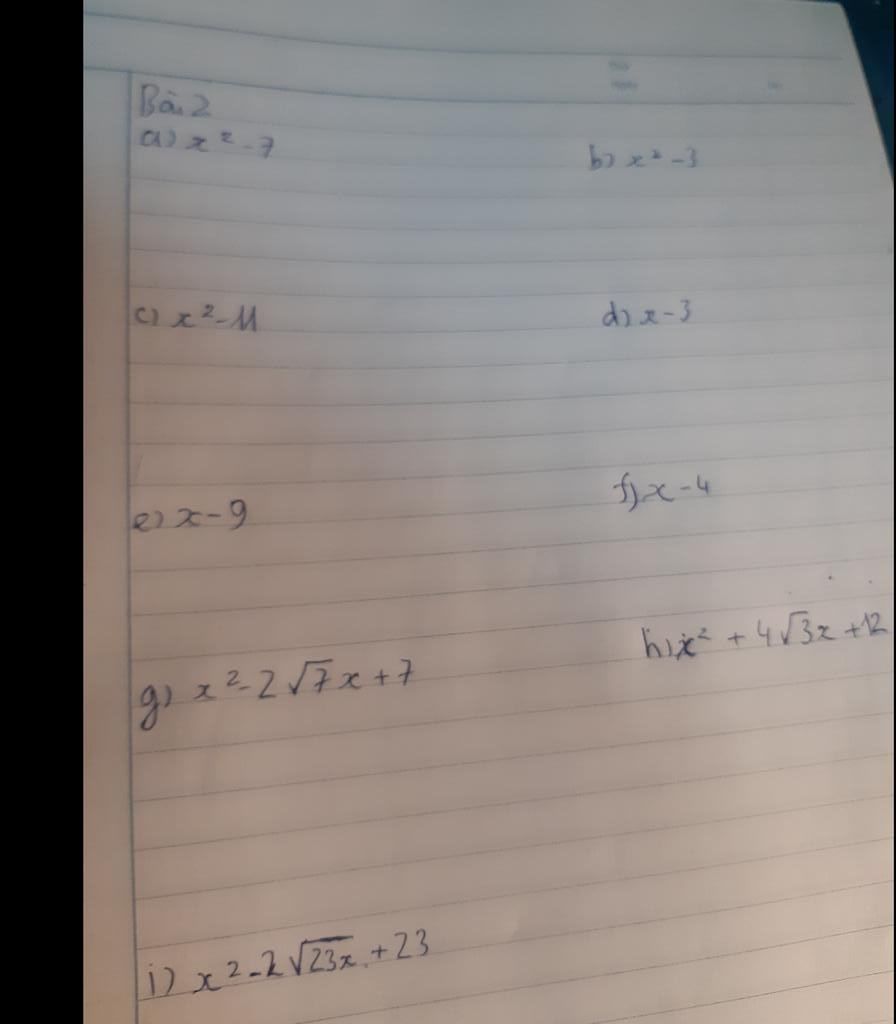 Bài 2
a) x² - 7
b) x² - 3
c) x² - 11
d) x - 3
e) x - 9
f) x - 4
g) x² - 2√7x + 7
h) x² + 4√3x + 12
i) x² - 2√23x + 23